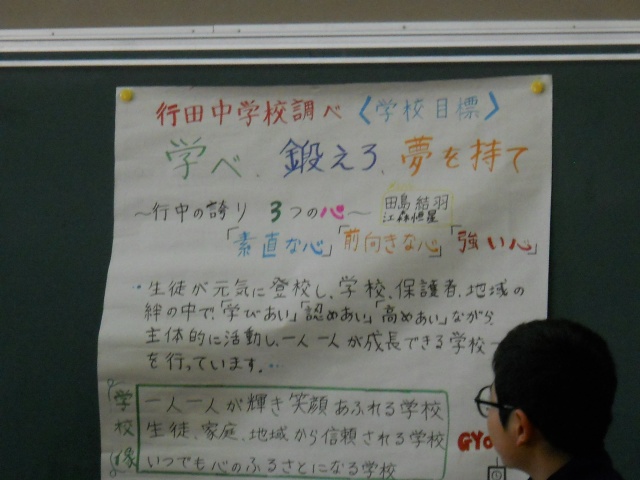 行田中学校調べ〈学校目標〉
学べ、鍛えろ、夢を持て
〜行中の誇り 3つの心〜
田島 結羽
江森恒星
「素直な心」「前向きな心」「強い心」
・生徒が元気に登校し、学校、保護者、地域の
絆の中で「学びあい」「認めあい」「高めあい」ながら、
主体的に活動し、一人一人が成長できる学校
を行っています。
学校像
一人一人が輝き笑顔あふれる学校
生徒、家庭、地域から信頼される学校
いつでも心のふるさとになる学校